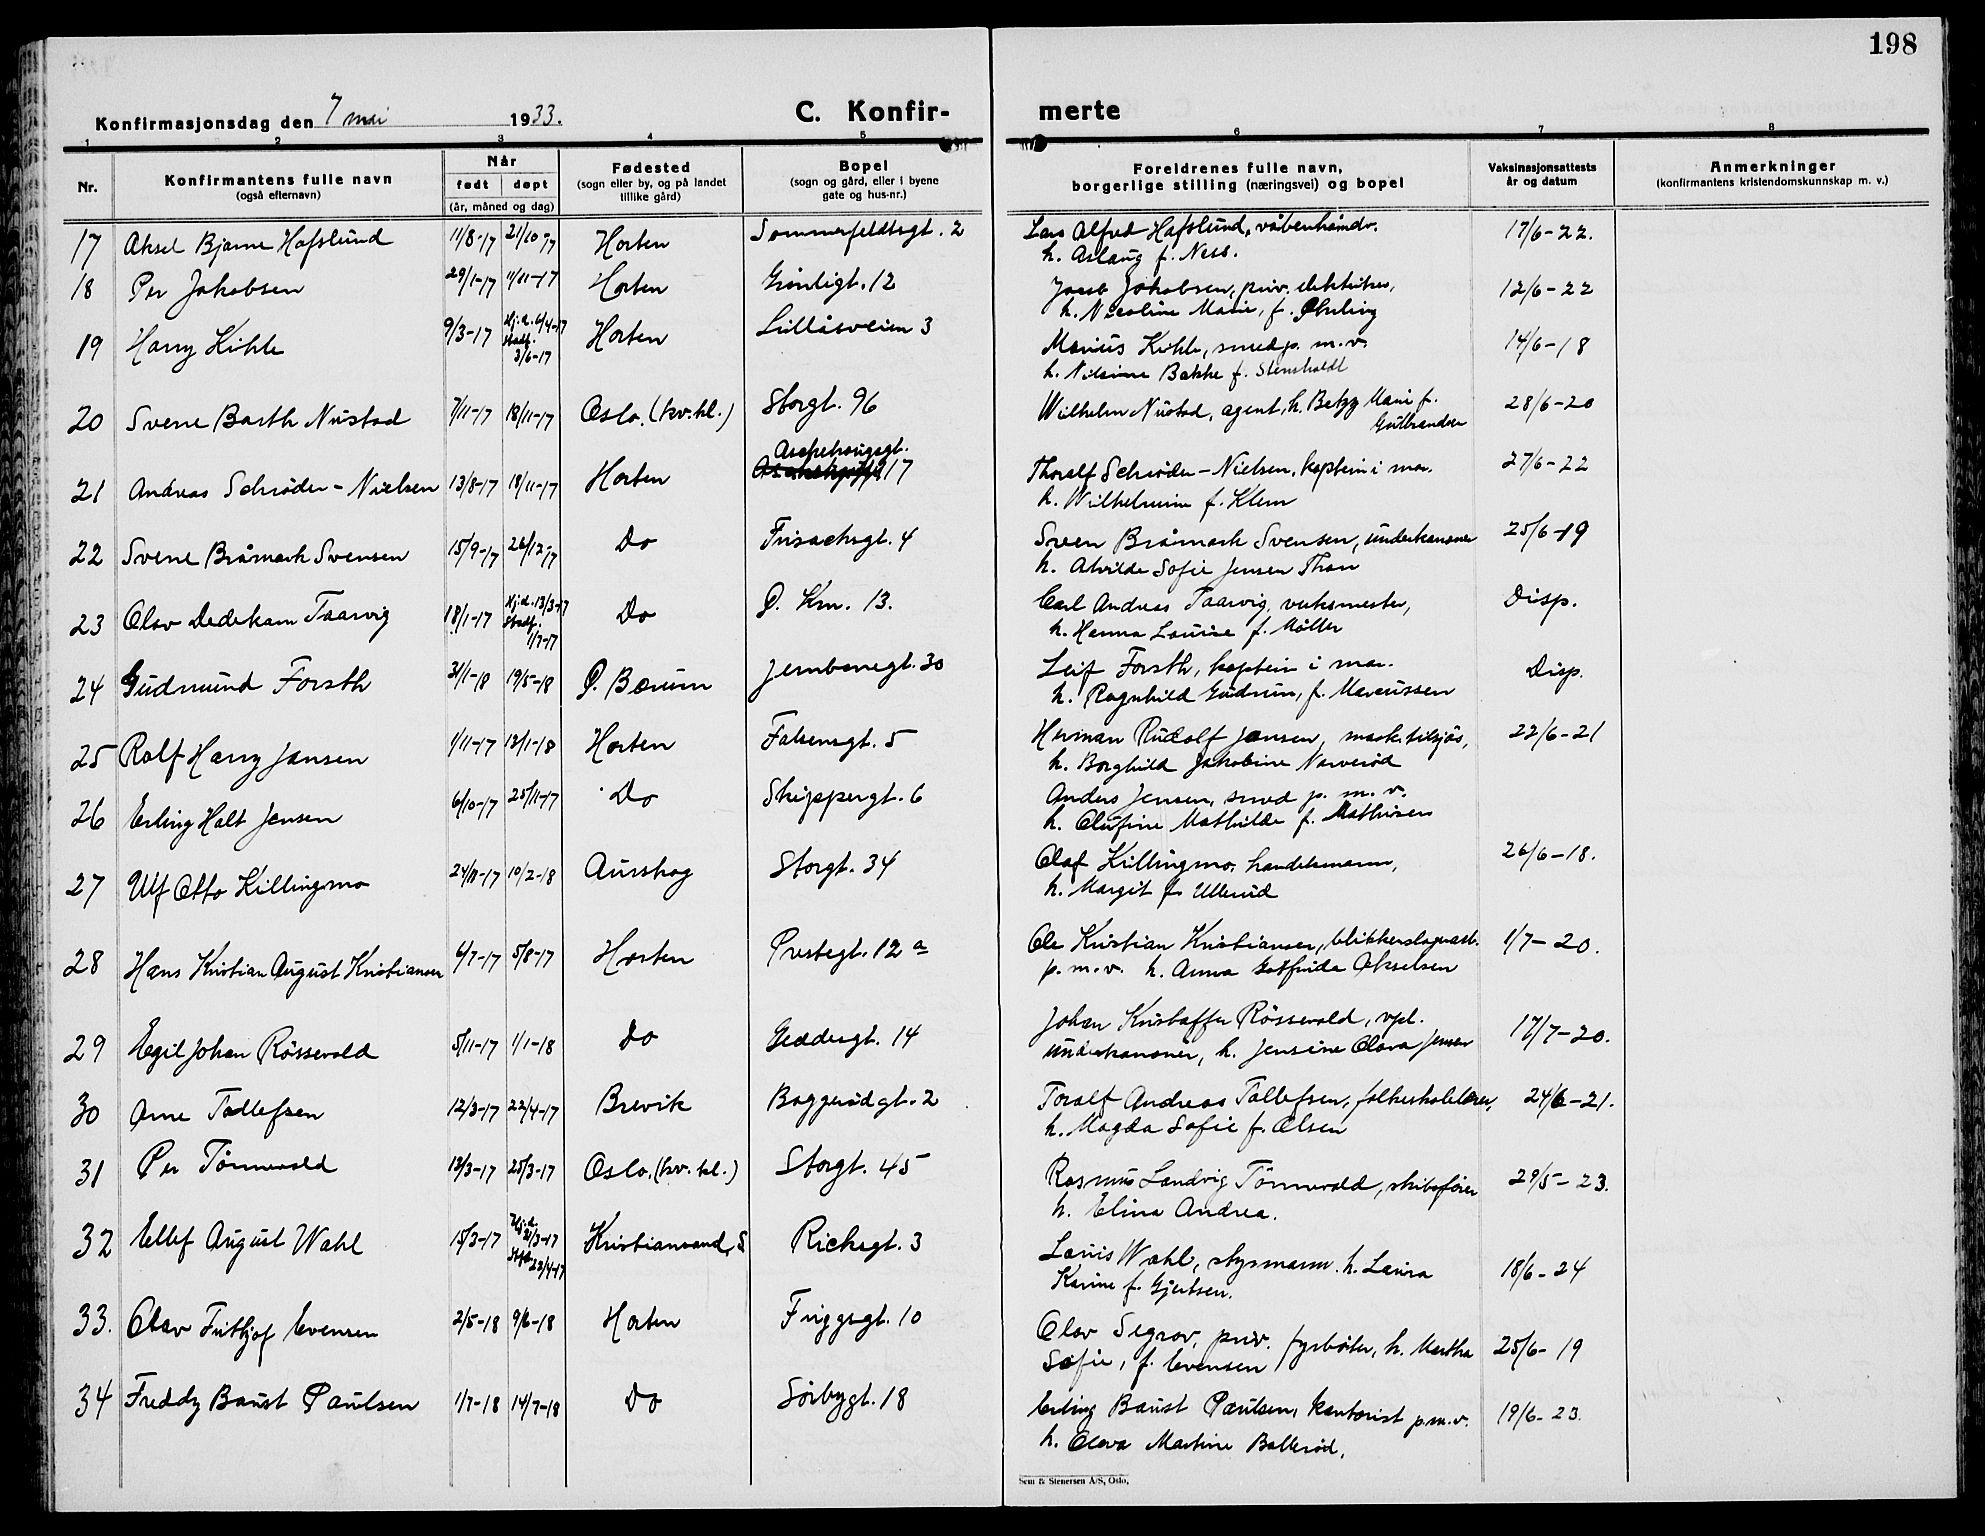 198
Konfirmasjonsdag den 7 mai 1933.
C. Konfir- merte
1 2 3 4 5 6 7 8
Nr.
Konfirmantens fulle navn
(også efternavn)
Når
født døpt
(år, måned og dag)
Fødested
(sogn eller by, og på landet
tillike gård)
Bopel
(sogn og gård, eller i byene
gate og hus-nr.)
Foreldrenes fulle navn,
borgerlige stilling (næringsvei) og bopel
Vaksinasjonsattests
år og datum
Anmerkninger
(konfirmantens kristendomskunnskap m. v.)
17 Aksel Bjarne Hafslund 11/8-17 21/10-17 Horten Sommerfeldtsgt. 2 Lars Alfred Hafslund, våbenhåndv. 17/6-22.
h. Aslaug f. Ness.
18 Per Jakobsen 29/1-17 11/11-17 Horten Grønligt. 12 Jacob Jakobsen, priv. elektriker, 12/6-22
h. Nicoline Marie, f.
19 Harry Kihle 9/3-17 Hj.d. 6/4-17 Horten Lillåsveien 3 Marius Kihle, smed p. m.v. 14/6-18
Stadf.
3/6-17
h. Bakke f. Stensholdt
20 Sverre Barth Nustad 7/11-17 18/11-17 Oslo. (kv.kl.) Storgt. 96 Wilhelm Nustad, agent, h. Betzy Marie f. 28/6-20
Gulbrandsen
21 Andreas Schrøder-Nielsen 13/8-17 18/11-17 Horten Apotekergt. 17 Thoralf Schrøder-Nielsen, kaptein i mar. 27/6-22
h. Wilhelmine f. Klem
22 Sverre Bråmark Svensen 15/9-17 26/12-17 Do Frisachsgt. 4 Sven Bråmark Svensen, underkanoner 25/6-19
h. Alvilde Sofie Jensen Thon
23 Olav Dedekam Taarvig 18/1-17 Hj.d. 13/3-17 Do Ø. Km. 13. Carl Andreas Taarvig, verksmester, Disp.
Stadf.
1/7-17
h. Hanna Louise f. Møller
24 Gudmund Forsth 31/1-18 19/5-18 Ø. Bærum Jernbanegt. 30 Leif Forsth, kaptein i mar. Disp.
h. Ragnhild Gudrun, f. Marcussen
25 Rolf Harry Jansen 1/11-17 13/1-18 Horten Falsensgt. 5 Herman Rudolf Jansen, mask. tilsjøs, 22/6-21
h. Borghild Jakobine Narverød
26 Erling Holt Jensen 6/10-17 25/11-17 Do Skippergt. 6 Anders Jensen, smed p. m. v.
h. Olufine Mathilde f. Mathisen
27 Ulf Otto Killingmo 24/11-17 10/2-18 Aurskog Storgt. 34 Olaf Killingmo, handelsmann, 26/6-18.
h. Margit f. Ullerud
28 Hans Kristian August Kristiansen 6/7-17 5/8-17 Horten Prestegt. 12 a Ole Kristian Kristiansen, blikkenslagerarb. 1/7-20.
p. m. v. h. Anna Gotfrida Akselsen
29 Egil Johan Røssevold 5/11-17 1/1-18 Do Geddesgt. 14 Johan Kristoffer Røssevold, vpl. 17/7-20.
underkanoner, h. Jensine Olava Jensen
30 Arne Tollefsen 12/3-17 22/4-17 Brevik Baggerødgt. 2 Toralf Andreas Tollefsen, folkeskolelærer, 24/6-21.
h. Magda Sofie f. Olsen
31 Per Tønnevold 13/3-17 25/3-17 Oslo. (kv. kl.) Storgt. 45 Rasmus Landvig Tønnevold, skibsfører 29/5-23.
h. Elina Andrea.
32 Ellef August Wahl 15/3-17 Hj.d. 21/3-17 Kristiansand S Rickegt. 3 Louis Wahl, styrmann. h. Laura 18/6-24
22/4-17
Karine f. Gjertsen.
33. Olav Fritjof Evensen 2/5-18 9/6-18 Horten Friggsgt. 10 Olav Segrov, priv. fyrbøter, h. Martha 25/6-19
Sofie, f. Evensen
34 Freddy Baust Paulsen 1/7-18 14/7-18 Do Sørbygt. 18 Erling Baust Paulsen, kontorist p.m.v. 19/6-23.
h. Olava Martine Bollerød.
Sem & Stenersen A/S, Oslo,